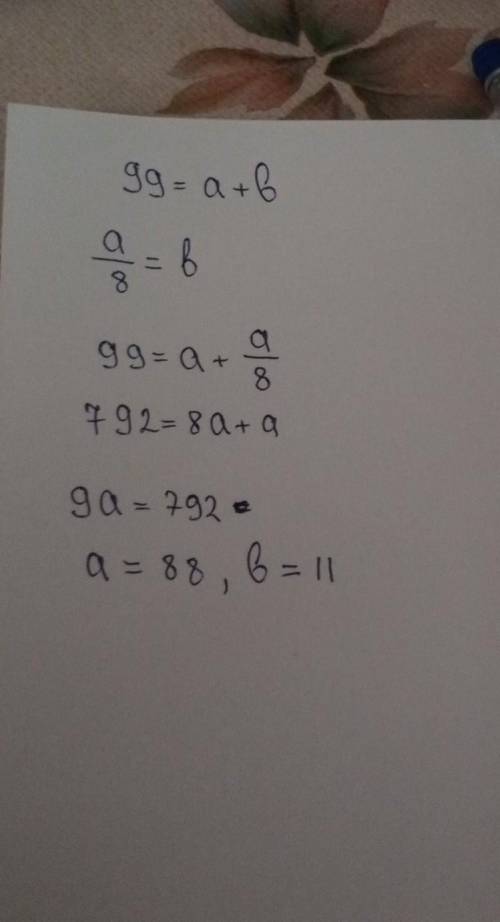 99 = a + b
a/8 = b
99 = a + a/8
792 = 8a + a
9a = 792
a = 88, b = 11